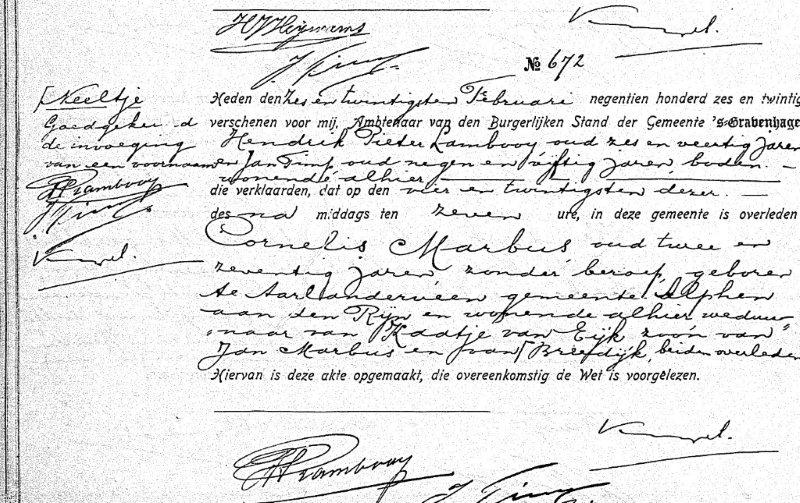 HJHeymans
№ 672
[Neeltje
Goedgekeurd
de invoeging
van een voornaam
HPLambooy
J Timp
Heden den zes en twintigsten Februari negentien honderd zes en twintig
verschenen voor mij, Ambtenaar van den Burgerlijken Stand der Gemeente 's-Gravenhage
Hendrik Pieter Lambooy oud zes en veertig jaren
en Jan Timp, oud negen en vijftig jaren, boden
wonende alhier
die verklaarden, dat op den vier en twintigsten dezer
des na middags ten zeven ure, in deze gemeente is overleden
Cornelis Marbus oud twee en
zeventig jaren, zonder beroep, geboren
te Aarlanderveen gemeente Alphen
aan den Rijn en wonende alhier weduw-
naar van Kaatje van Eijk, zoon van
Jan Marbus en van [ Breedijk, beiden overleden
Hiervan is deze akte opgemaakt, die overeenkomstig de Wet is voorgelezen.
HPLambooy
J Timp